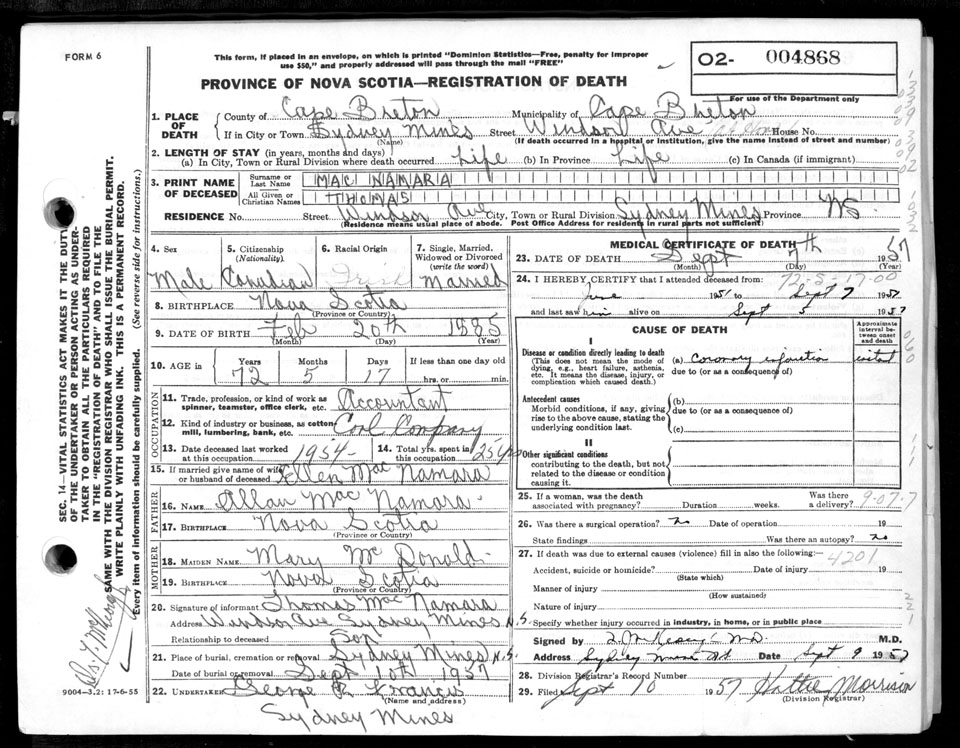 FORM 6
This form, if placed in an envelope, on which is printed "Dominion Statistics—Free, penalty for improper
use $50," and properly addressed will pass through the mail "FREE"
O2- 004868
PROVINCE OF NOVA SCOTIA—REGISTRATION OF DEATH
For use of the Department only
1. PLACE OF DEATH
County of Cape Breton Municipality of Cape Breton
If in City or Town Sydney Mines Street Windsor Ave House No.
(Name) (If death occurred in a hospital or institution, give the name instead of street and number)
2. LENGTH OF STAY (in years, months and days)
(a) In City, Town or Rural Division where death occurred Life (b) In Province Life (c) In Canada (if immigrant)
3. PRINT NAME OF DECEASED
Surname or Last Name MAC NAMARA
All Given or Christian Names THOMAS
RESIDENCE No. Street Windsor Ave City, Town or Rural Division Sydney Mines Province NS.
(Residence means usual place of abode. Post Office Address for residents in rural parts not sufficient)
4. Sex Male
5. Citizenship (Nationality). Canadian
6. Racial Origin Irish
7. Single, Married, Widowed or Divorced (write the word) Married
8. BIRTHPLACE Nova Scotia
(Province or Country)
9. DATE OF BIRTH Feb 20th 1885
(Month) (Day) (Year)
10. AGE in Years 72 Months 5 Days 17 If less than one day old hrs. or min.
OCCUPATION
11. Trade, profession, or kind of work as spinner, teamster, office clerk, etc. Accountant
12. Kind of industry or business, as cotton mill, lumbering, bank, etc. Coal Company
13. Date deceased last worked at this occupation 1954
14. Total yrs. spent in this occupation 25 yrs
15. If married give name of wife or husband of deceased Ellen Mac Namara
FATHER
16. NAME Allan Mac Namara
17. BIRTHPLACE Nova Scotia
(Province or Country)
MOTHER
18. MAIDEN NAME Mary McDonald
19. BIRTHPLACE Nova Scotia
(Province or Country)
20. Signature of informant Thomas Mac Namara
Address Windsor Ave Sydney Mines N.S.
Relationship to deceased Son
21. Place of burial, cremation or removal Sydney Mines N.S.
Date of burial or removal Sept 10th 1957
22. UNDERTAKER George Francis
(Name and address)
Sydney Mines
9004-3.2: 17-6-55
MEDICAL CERTIFICATE OF DEATH
23. DATE OF DEATH Sept 7th 1957
(Month) (Day) (Year)
24. I HEREBY CERTIFY that I attended deceased from:
June 1951 to Sept 7 1957
and last saw him alive on Sept 5 1957
CAUSE OF DEATH
Approximate interval between onset and death
I
Disease or condition directly leading to death
(This does not mean the mode of dying, e.g., heart failure, asthenia, etc. It means the disease, injury, or complication which caused death.)
(a) Coronary infarction
due to (or as a consequence of)
Antecedent causes
Morbid conditions, if any, giving rise to the above cause, stating the underlying condition last.
(b)
due to (or as a consequence of)
(c)
II
Other significant conditions
contributing to the death, but not related to the disease or condition causing it.
25. If a woman, was the death associated with pregnancy? Duration weeks. Was there a delivery? 9-07-7
26. Was there a surgical operation? no Date of operation 19
State findings Was there an autopsy? no
27. If death was due to external causes (violence) fill in also the following:— 4201
Accident, suicide or homicide? Date of injury 19
(State which)
Manner of injury
(How sustained)
Nature of injury
Specify whether injury occurred in industry, in home, or in public place
Signed by M.D.
Address Sydney Mines Date Sept 9 1957
28. Division Registrar's Record Number
29. Filed Sept 10 1957 Hattie Morrison
(Division Registrar)
SEC. 14—VITAL STATISTICS ACT MAKES IT THE DUTY
OF THE UNDERTAKER OR PERSON ACTING AS UNDER-
TAKER TO OBTAIN ALL THE PARTICULARS REQUIRED
IN THE "REGISTRATION OF DEATH" AND TO FILE THE
SAME WITH THE DIVISION REGISTRAR WHO SHALL ISSUE THE BURIAL PERMIT.
WRITE PLAINLY WITH UNFADING INK. THIS IS A PERMANENT RECORD.
Every item of information should be carefully supplied. (See reverse side for instructions.)